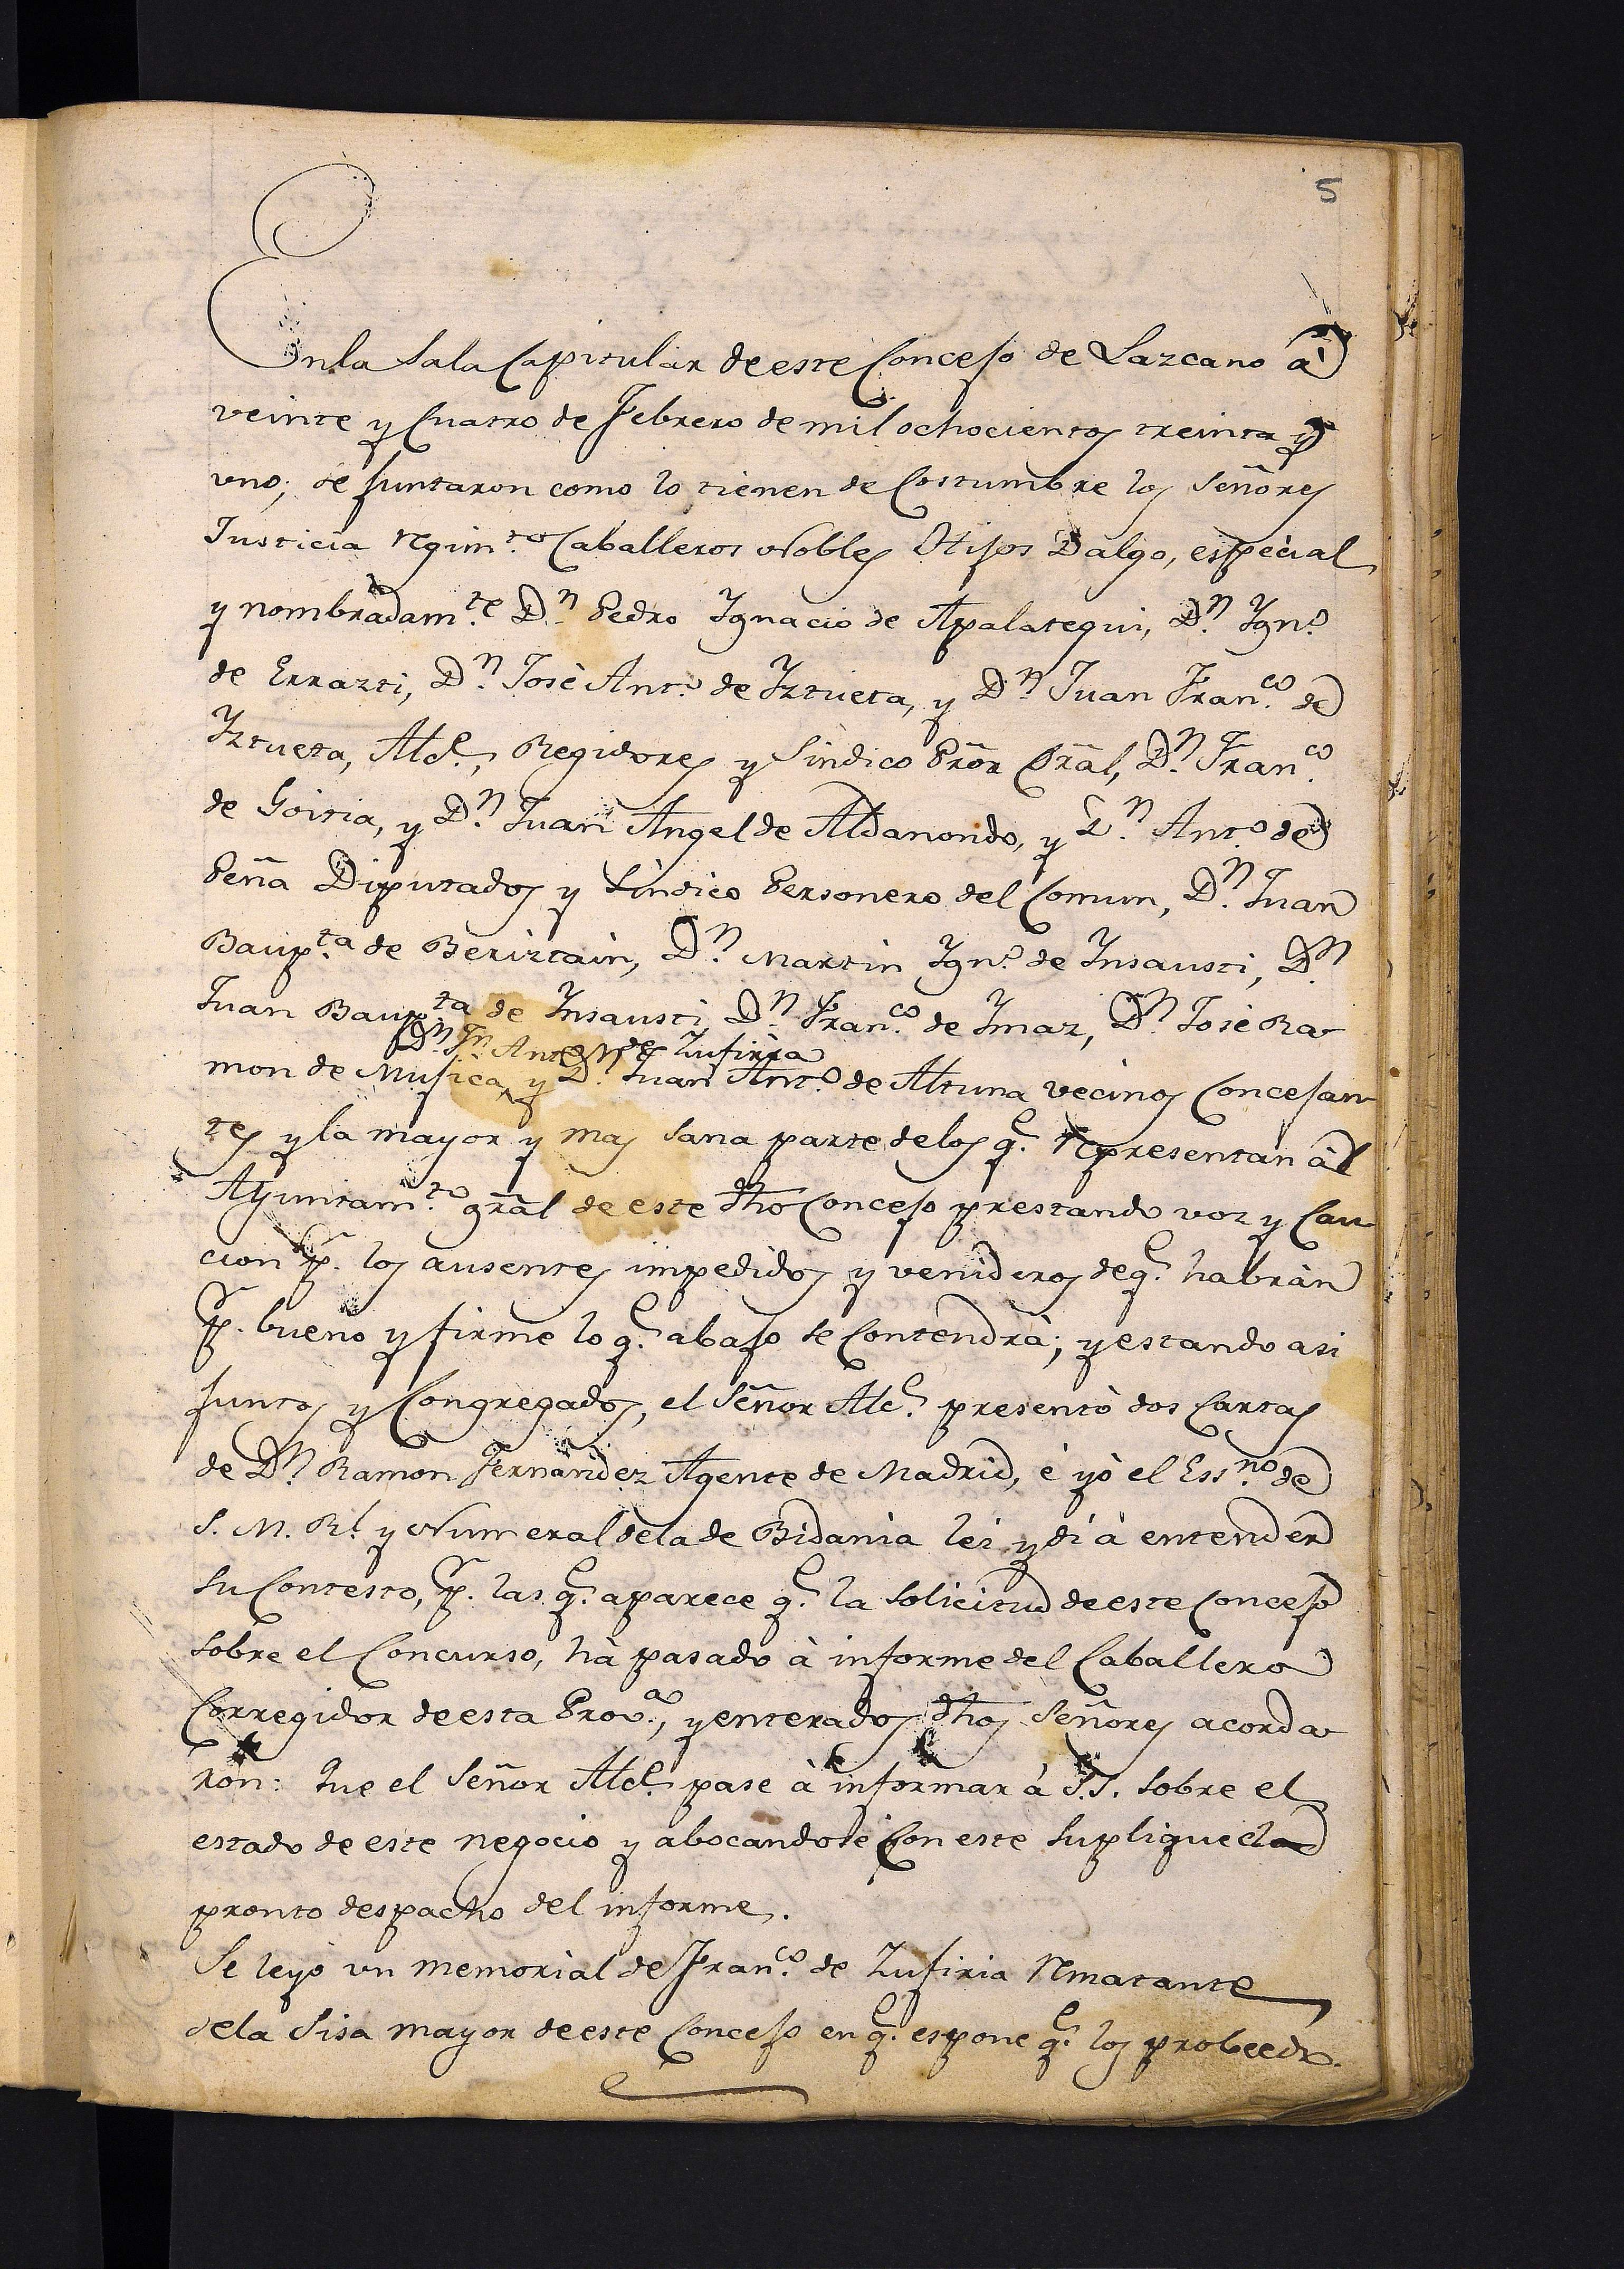 5
En la Sala Capitular de este Concejo de Lazcano à
veinte y Cuatro de Febrero de mil ochocientos treinta y
uno; se juntaron como lo tienen de Costumbre los Señores
Justicia Regim.to Caballeros Nobles Hijos Dalgo, especial
y nombradam.te D.n Pedro Ygnacio de Apalategui, D.n Ygn.o
de Errazti, D.n Josè Ant.o de Yztueta, y D.n Juan Fran.co de
Yztueta, Alc.e, Regidores y Sindico Prõr Grãl, D.n Fran.co
de Goitia, y D.n Juan Angel de Aldanondo, y D.n Ant.o de
Peña Diputados y Sindico Personero del Comun, D.n Juan
Baup.ta de Beriztain, D.n Martin Ygn.o de Ynsausti, D.n
Juan Baup.ta de Ynsausti, D.n Fran.co de Ymaz, D.n Josè Ra-
D.n J.n Ant.o de Zufiria
mon de Mujica, y D.n Juan Ant.o de Altuna vecinos Concejan-
tes y la mayor y mas sana parte de los q.e representan àl
Ayuntam.to grãl de este dho Concejo prestando voz y Cau-
cion p.r los ausentes impedidos y venideros de q.e habràn
p.r bueno y firme lo q.e abajo se Contendrà; y estando asi
juntos y Congregados, el Señor Alc.e presentò dos Cartas
de D.n Ramon Fernandez Agente de Madrid, è yò el Ess.no de
S. M. R.l y Numeral de la de Bidania leì y dì à entender
su Contesto, p.r las q.e aparece q.e la Solicitud de este Concejo
sobre el Concurso, hà pasado à informe del Caballero
Corregidor de esta Prov.a, y enterados dhos Señores acorda-
ron: Que el Señor Alc.e pase à informar à S.S. sobre el
estado de este negocio y abocandose Con este suplique el
pronto despacho del informe.
Se leyò un memorial de Fran.co de Zufiria Rematante
de la Sisa mayor de este Concejo en q.e espone q.e los probeedo.